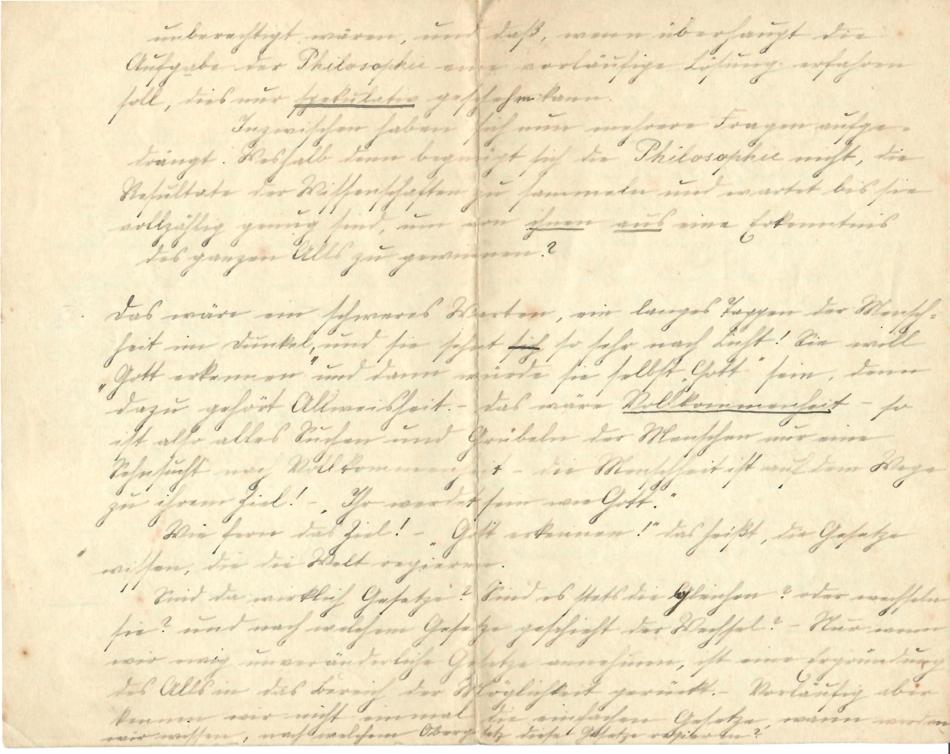 unberechtigt wären, und daß, wenn überhaupt die
Aufgabe der Philosophie eine vorläufige Lösung erfahren
soll, dies nur spekulativ geschehen kann.
Inzwischen haben sich nun mehrere Fragen aufge-
drängt. Weshalb denn begnügt sich die Philosophie nicht, die
Resultate der Wissenschaften zu sammeln und wartet bis sie
vollzählig genug sind, um von ihnen aus eine Erkenntnis
des ganzen Alls zu gewinnen?
Das wäre ein schweres Warten, ein langes Tappen der Mensch-
heit im Dunkel, und sie sehnt sich so sehr nach Licht! Sie will
„Gott erkennen" und dann würde sie selbst „Gott" sein, denn
dazu gehört Allweisheit. – Das wäre Vollkommenheit – so
ist also alles Suchen und Grübeln der Menschen nur eine
Sehnsucht nach Vollkommenheit – die Menschheit ist auf dem Wege
zu ihrem Ziel! – „Ihr werdet sein wie Gott."
Wie fern das Ziel! – „Gott erkennen!" das heißt, die Gesetze
wissen, die die Welt regieren.
Sind da wirklich Gesetze? Sind es stets die Gleichen? oder wechseln
sie? und nach welchem Gesetze geschieht der Wechsel? – Nur wenn
wir ewig unveränderliche Gesetze annehmen, ist eine Ergründung
des Alls in das Bereich der Möglichkeit gerückt. – Vorläufig aber
kennen wir nicht einmal die einfachen Gesetze, wann werden
wir wissen, nach welchem Obergesetz diese Gesetze regieren?